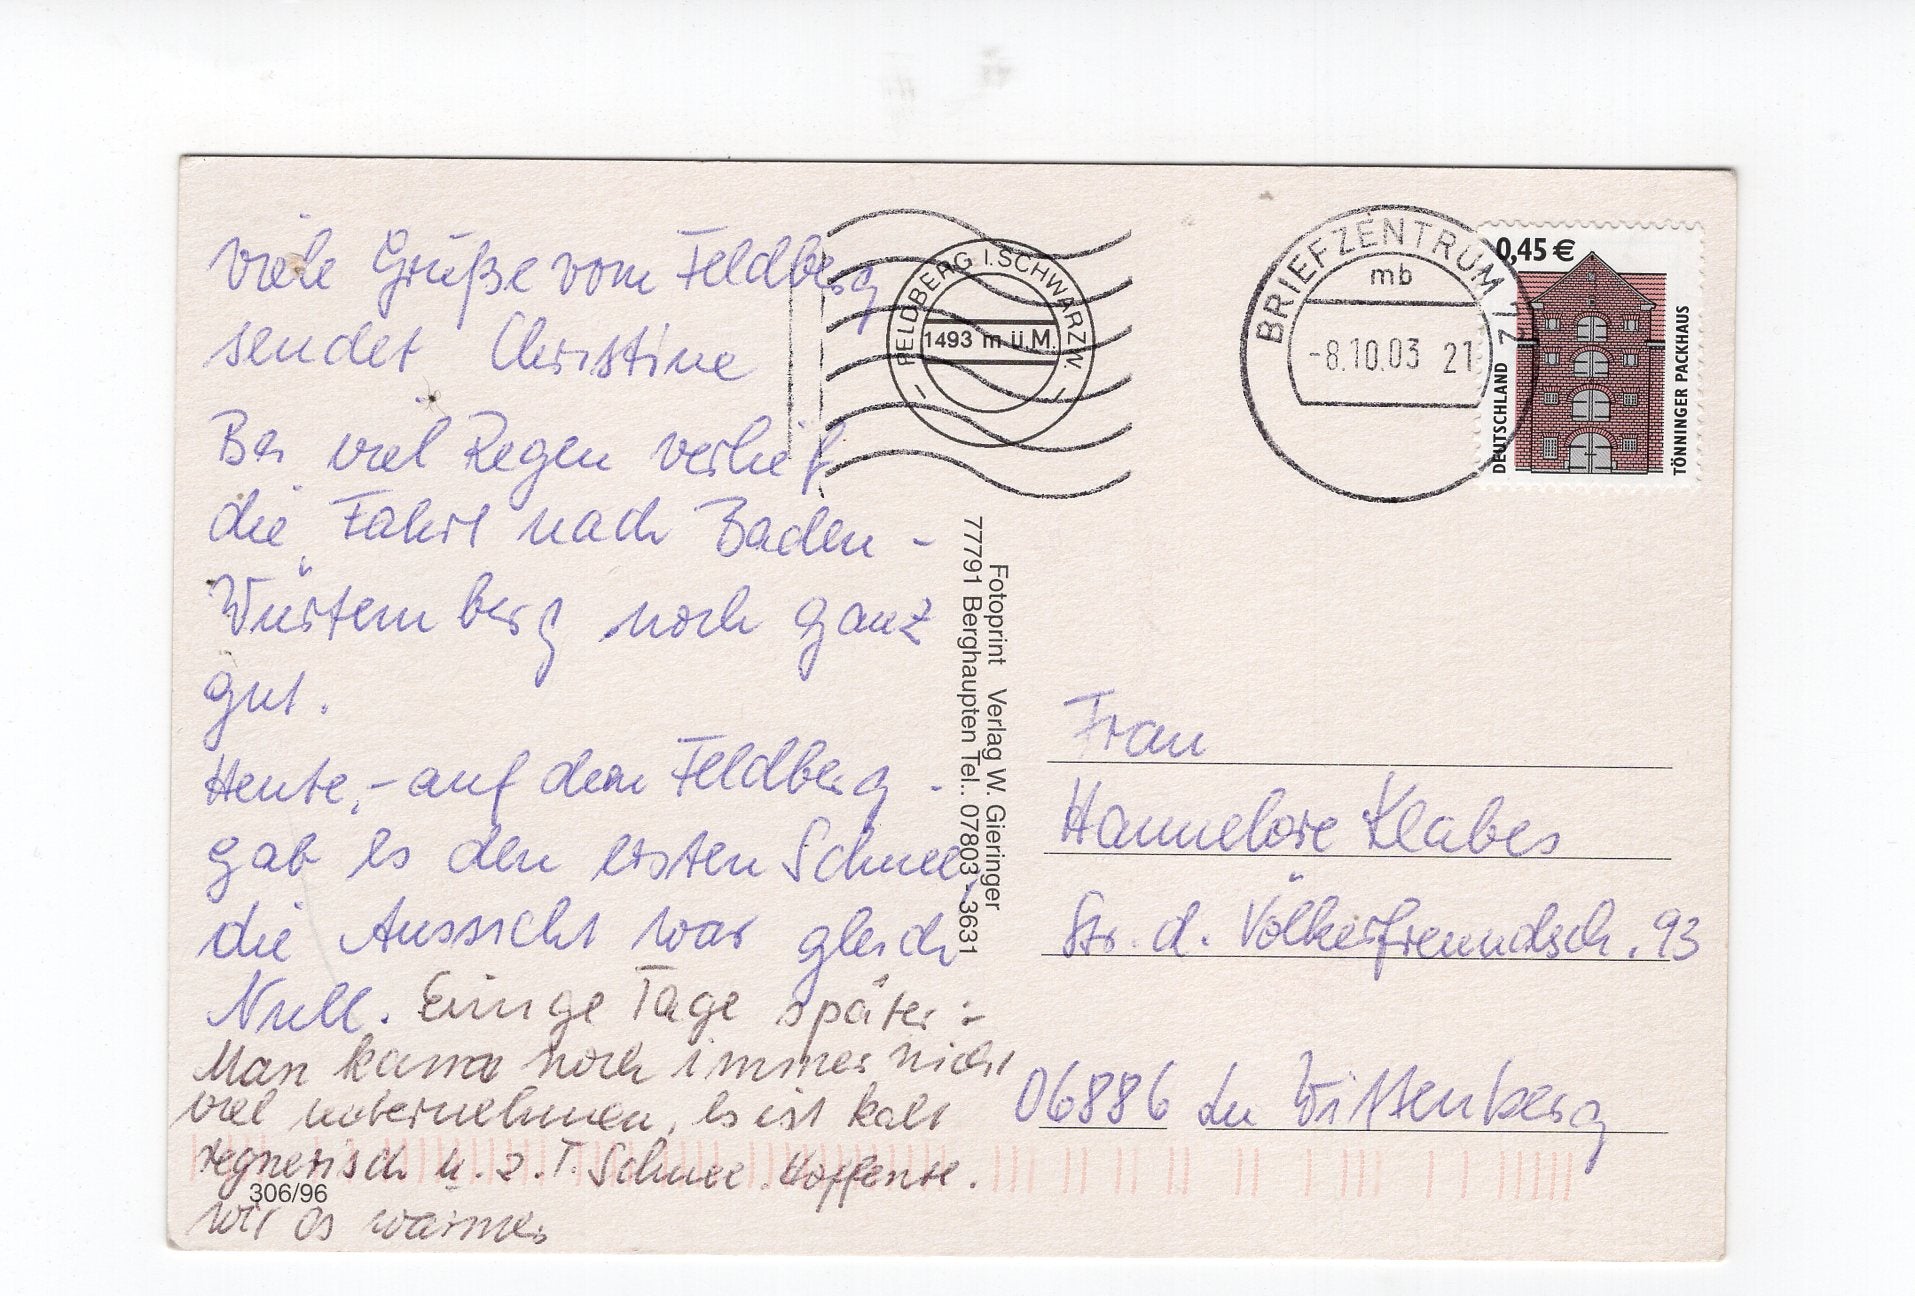 viele Grüße vom Feldberg
sendet Christine
Bei viel Regen verlief
die Fahrt nach Baden-
Würtemberg noch ganz
gut.
Heute, - auf dem Feldberg -
gab es den ersten Schnee,
die Aussicht war gleich
Null. Einige Tage später :-
Man kann noch immer nicht
viel unternehmen, es ist kalt
regnerisch u. z. T. Schnee. Hoffentl.
wir es wärmer
306/96
FELDBERG I. SCHWARZW.
1493 m ü.M.
BRIEFZENTRUM 7
mb
-8.10.03 21
0,45 €
DEUTSCHLAND
TÖNNINGER PACKHAUS
Fotoprint Verlag W. Gieringer
77791 Berghaupten Tel.. 07803 - 3631
Frau
Hannelore Klabes
Str. d. Völkerfreundsch. 93
06886 Lu Wittenberg